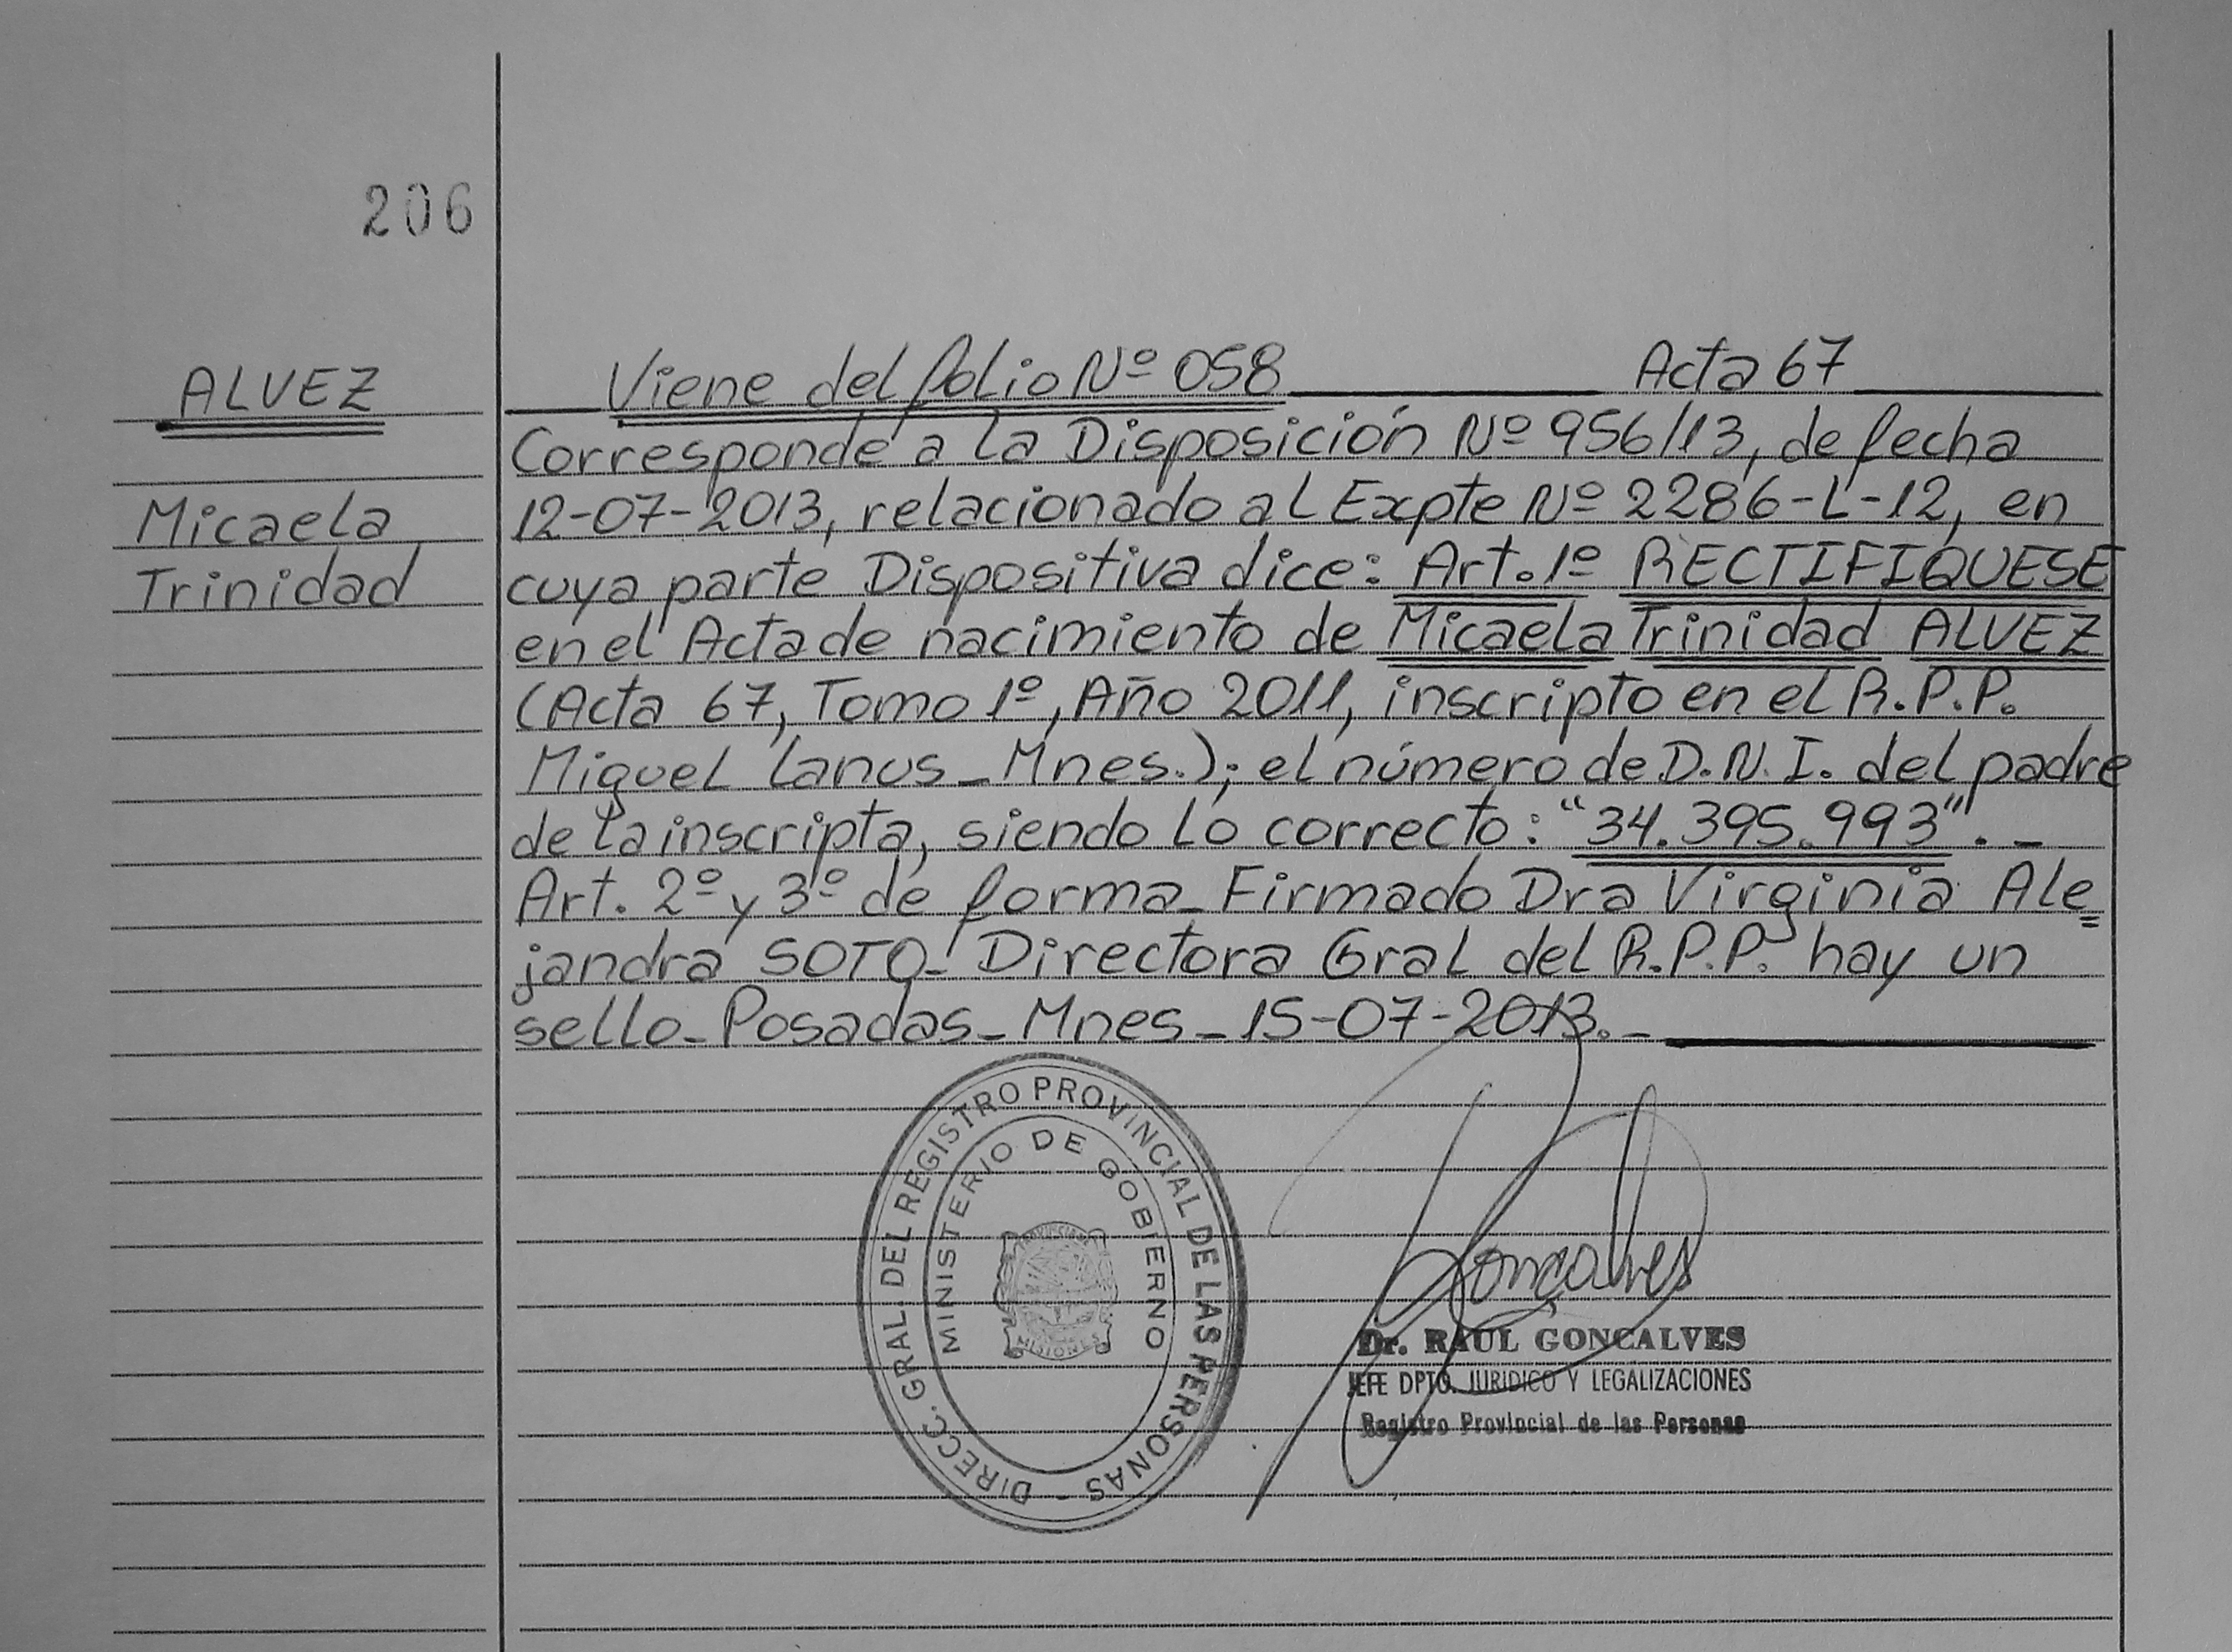 206
ALVEZ
Micaela
Trinidad
Viene del folio Nº 058 Acta 67
Corresponde a la Disposición Nº 956/13, de fecha
12-07-2013, relacionado al Expte Nº 2286-L-12, en
cuya parte Dispositiva dice: Art. 1º RECTIFIQUESE
en el Acta de nacimiento de Micaela Trinidad ALVEZ
(Acta 67, Tomo 1º, Año 2011, inscripto en el R.P.P.
Miguel Lanus - Mnes.); el número de D.N.I. del padre
de la inscripta, siendo lo correcto: "34.395.993". -
Art. 2º y 3º de forma - Firmado Dra Virginia Ale=
jandra SOTO - Directora Gral del R.P.P. hay un
sello - Posadas - Mnes - 15-07-2013. -
DIRECC. GRAL. DEL REGISTRO PROVINCIAL DE LAS PERSONAS -
MINISTERIO DE GOBIERNO
MISIONES
Gonçalves
Dr. RAUL GONCALVES
JEFE DPTO. JURIDICO Y LEGALIZACIONES
Registro Provincial de las Personas